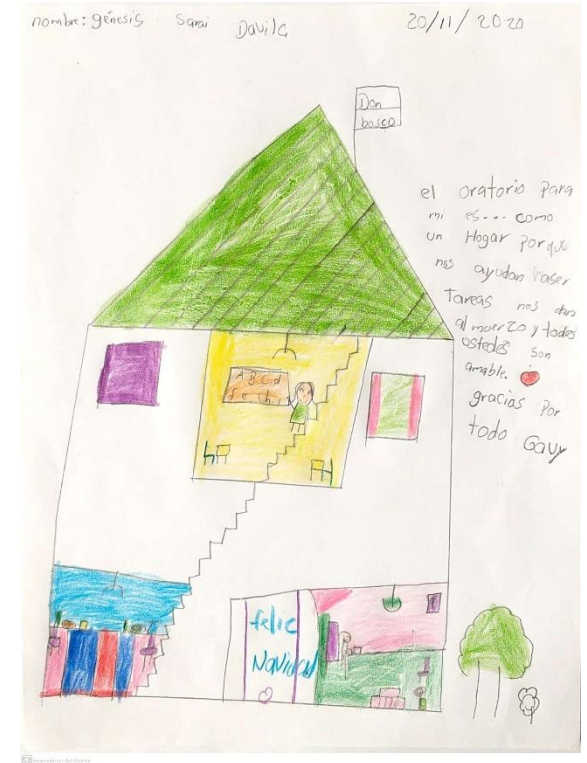 nombre: génesis Sarai Davila 20/11/2020
Don
bosco
el oratorio para
mi es... como
un Hogar porque
nos ayudan haser
Tareas nos dan
almuerzo y todos
ostedes son
amable.
gracias por
todo Gavy
A B C d
felic
Navidad